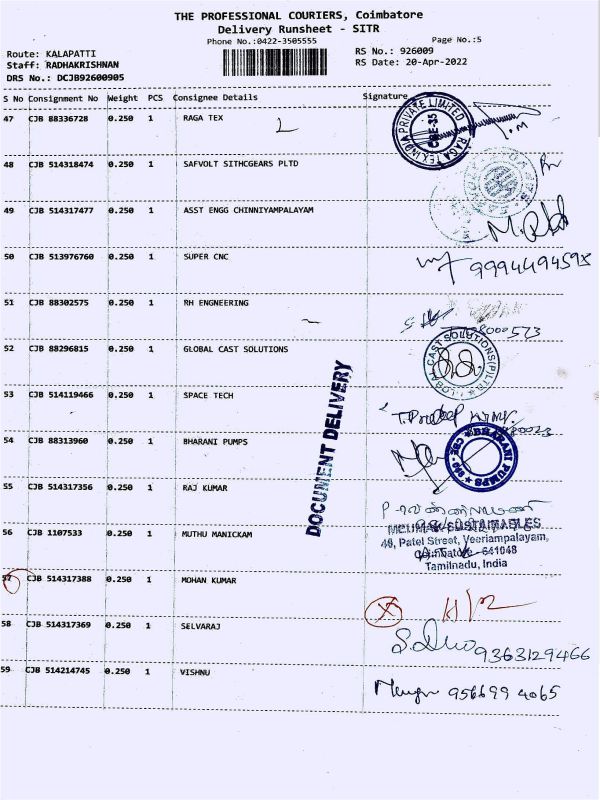 THE PROFESSIONAL COURIERS, Coimbatore
Delivery Runsheet - SITR
Phone No.:0422-3505555
Page No.:5
Route: KALAPATTI
RS No.: 926009
Staff: RADHAKRISHNAN
RS Date: 20-Apr-2022
DRS No.: DCJB92600905
S No Consignment No Weight PCS Consignee Details Signature
47 CJB 88336728 0.250 1 RAGA TEX
RAGA TEX INDIA PRIVATE LIMITED
CBE-35
48 CJB 514318474 0.250 1 SAFVOLT SITHCGEARS PLTD
49 CJB 514317477 0.250 1 ASST ENGG CHINNIYAMPALAYAM
50 CJB 513976760 0.250 1 SUPER CNC
9994494598
51 CJB 88302575 0.250 1 RH ENGNEERING
52 CJB 88296815 0.250 1 GLOBAL CAST SOLUTIONS
GLOBAL CAST SOLUTIONS(P)LTD
53 CJB 514119466 0.250 1 SPACE TECH
DOCUMENT DELIVERY
54 CJB 88313960 0.250 1 BHARANI PUMPS
BHARANI PUMPS
55 CJB 514317356 0.250 1 RAJ KUMAR
56 CJB 1107533 0.250 1 MUTHU MANICKAM
48, Patel Street, Veeriampalayam,
Coimbatore - 641048
Tamilnadu, India
57 CJB 514317388 0.250 1 MOHAN KUMAR
58 CJB 514317369 0.250 1 SELVARAJ
9363129466
59 CJB 514214745 0.250 1 VISHNU
956699 4065